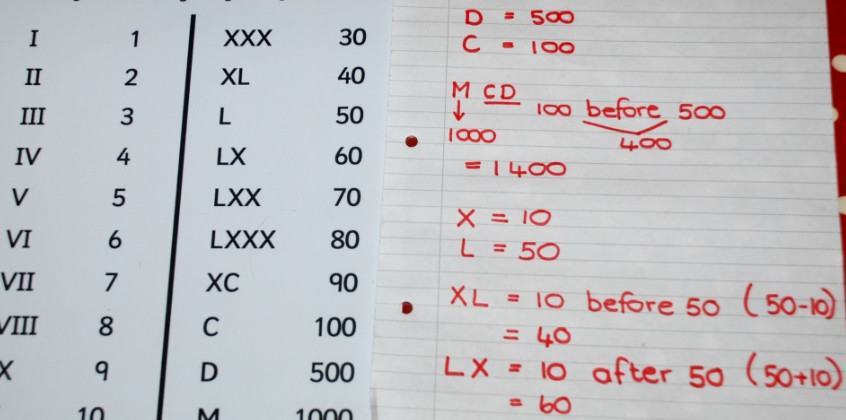 I 1 XXX 30
II 2 XL 40
III 3 L 50
IV 4 LX 60
V 5 LXX 70
VI 6 LXXX 80
VII 7 XC 90
VIII 8 C 100
X 9 D 500
10 M 1000
D = 500
C = 100
M CD 100 before 500
1000 400
= 1400
X = 10
L = 50
XL = 10 before 50 (50-10)
= 40
LX = 10 after 50 (50+10)
= 60